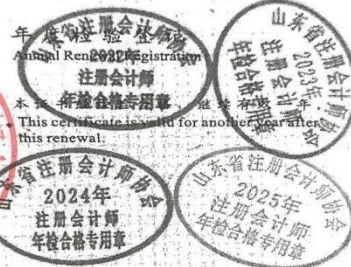 年度检验登记
Annual Renewal Registration
本证书经检验合格，继续有效一年。
This certificate is valid for another year after
this renewal.
山东省注册会计师协会
2022年
注册会计师
年检合格专用章
山东省注册会计师协会
2023年
注册会计师
年检合格专用章
山东省注册会计师协会
2024年
注册会计师
年检合格专用章
山东省注册会计师协会
2025年
注册会计师
年检合格专用章